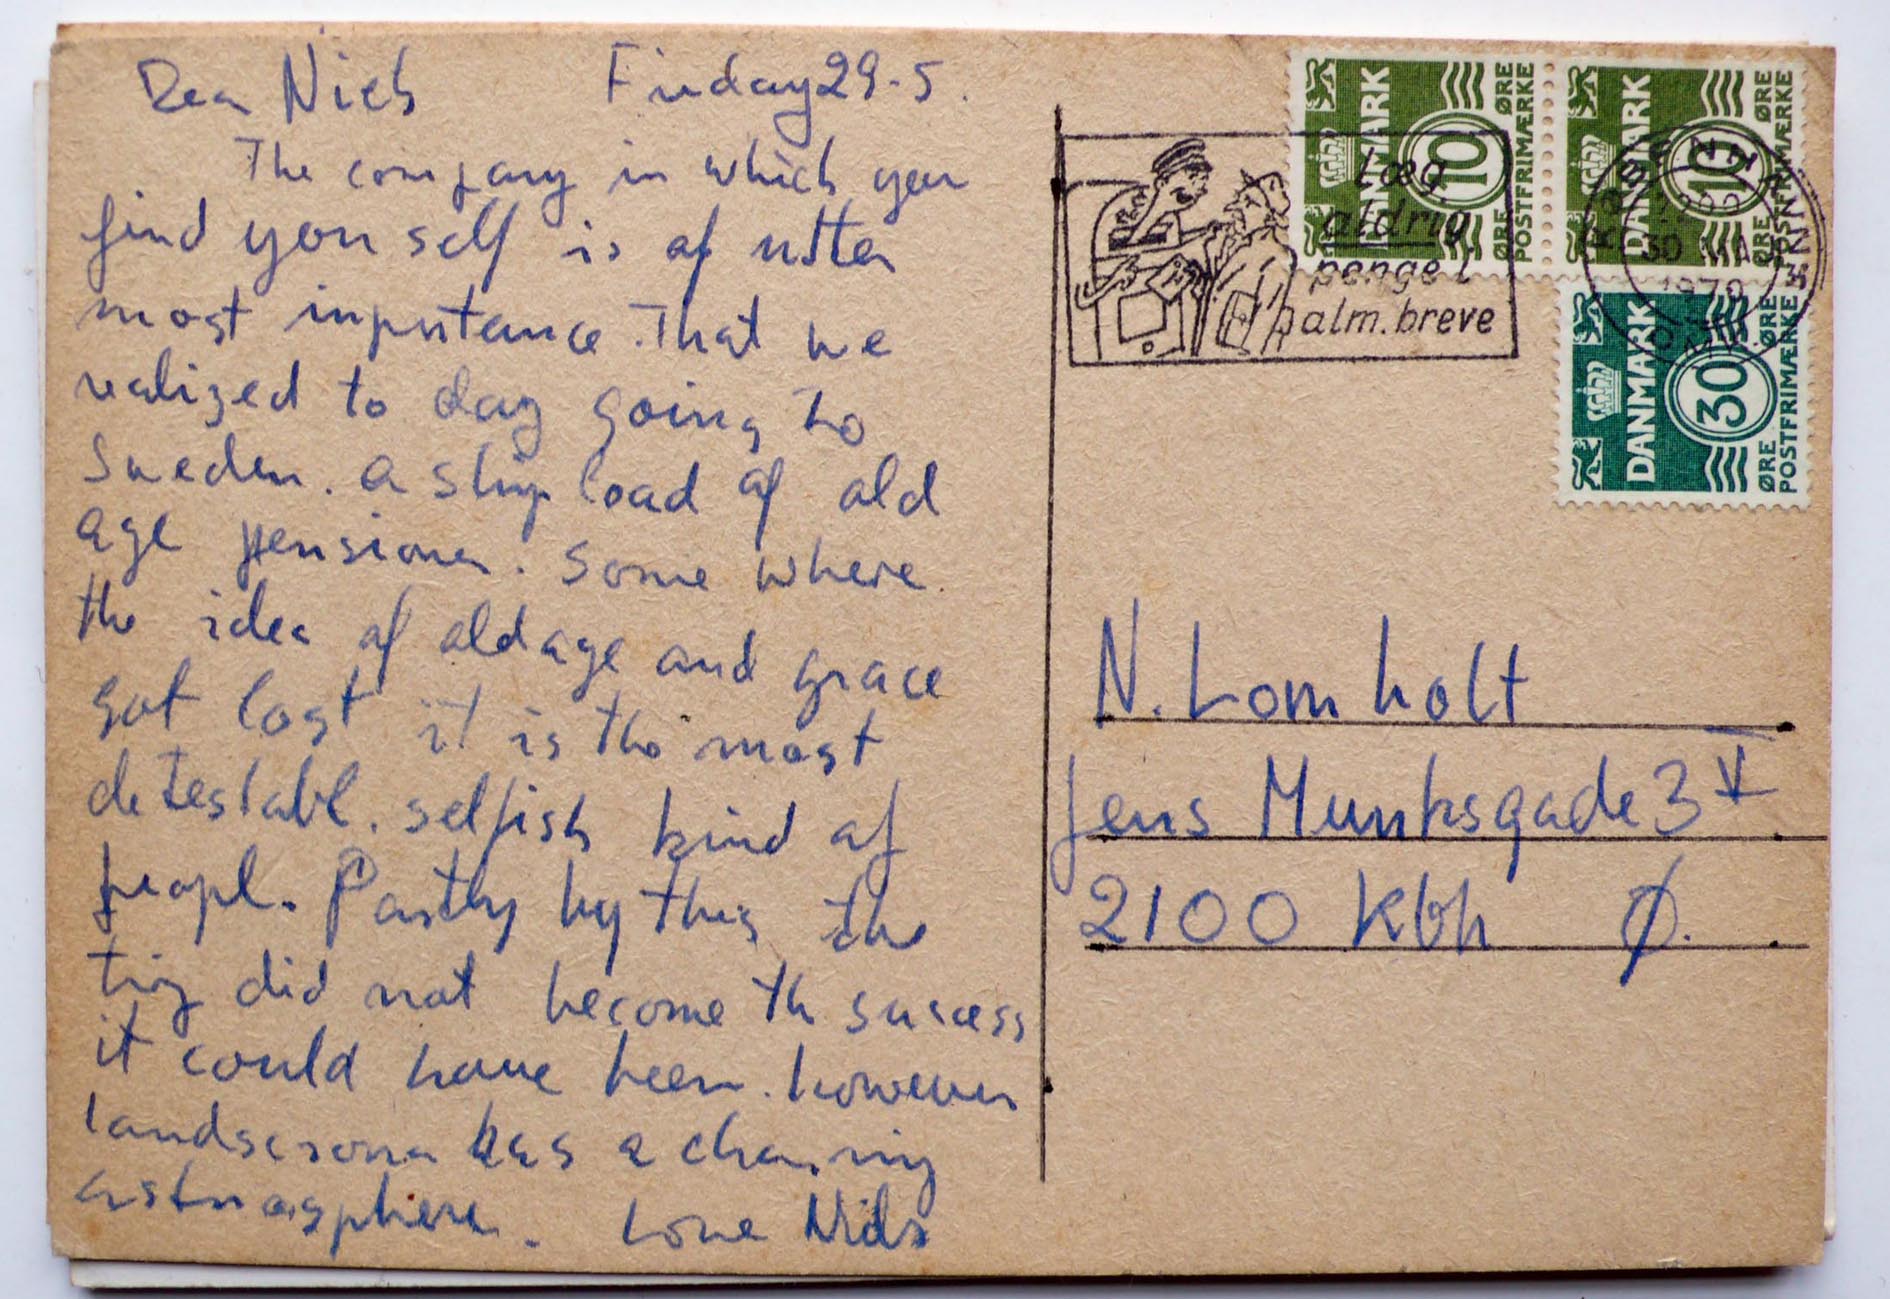 Dear Niels Friday 29-5.
The company in which you
find your self is af utter
most inportance. That we
realized to day going to
Sweden. a ship load af old
age pensioner. Some where
the idea af oldage and grace
got lost it is the most
detestabl. selfish kind af
peopl. Partly by this the
trip did not become th sucess
it could have been. however
landscrona has a charming
astmosphere. Love Niels
Læg
aldrig
penge i
alm. breve
DANMARK 10 ØRE ØRE POSTFRIMÆRKE
DANMARK 10 ØRE ØRE POSTFRIMÆRKE
30 MAJ
1970
DANMARK 30 ØRE ØRE POSTFRIMÆRKE
N. Lomholt
Jens Munksgade 3 V
2100 Kbh Ø.